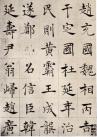 趙充國魏相丙吉
于定國杜延年治
民則黃霸王成龔
遂鄭弘召信臣韓
延壽尹翁歸趙廣